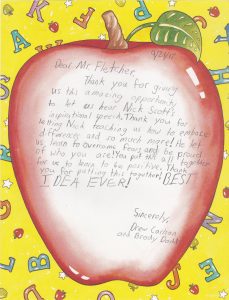 9/21/17
Dear Mr. Fletcher,
Thank you for giving
us this amazing opportunity
to let us hear Nick Scott's
inspirational speech. Thank you for
letting Nick teaching us how to embrace
differences and so much more! He let
us learn to overcome fears and be proud
of who you are! You put this all together
for us to learn to be positive. Thank
you for putting this together! BEST
IDEA EVER!
Sincerely,
Drew
and Brody